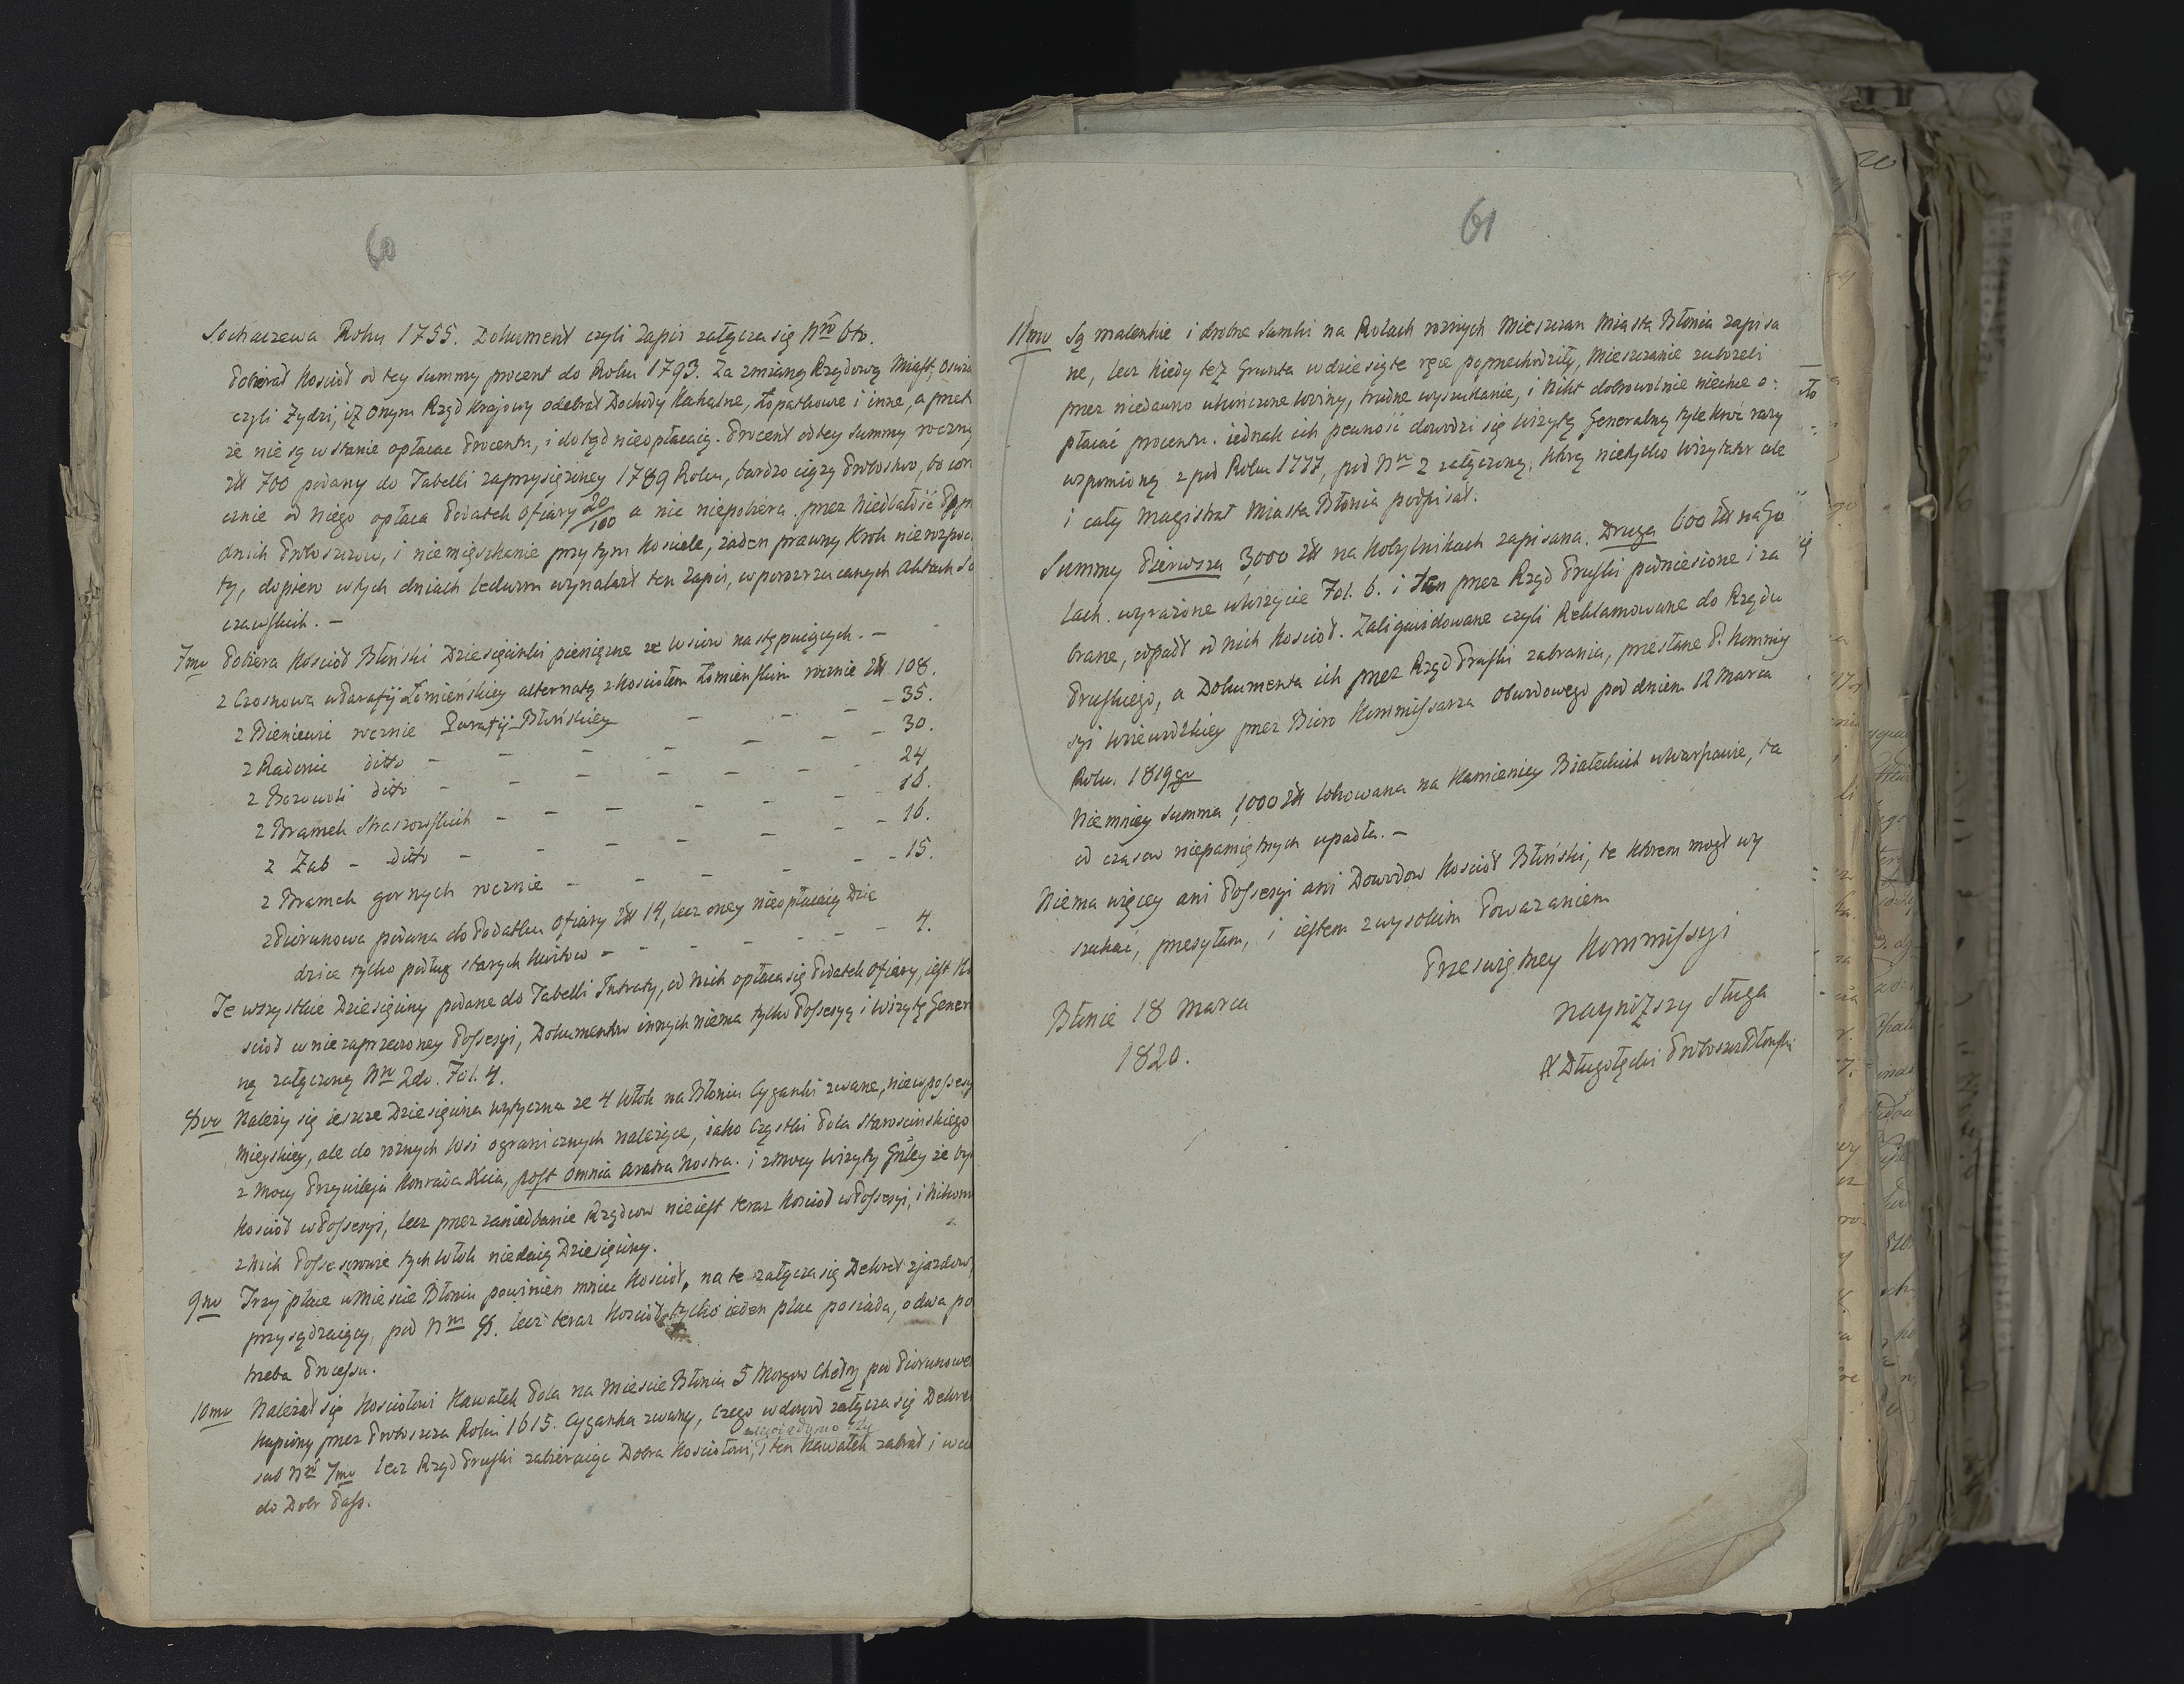 60
Sochaczewa Roku 1755. Dokument czyli Zapis załącza się Nro 6to.
Pobierał Kosciół od tey summy procent do Roku 1793. Za zmianą Rządową Miast,
czyli Zydzi, iż onym Rząd Krajowy odebrał Dochody Kahalne, Łopatkowe i inne, a
że nie są w stanie opłacac Procentu, i dotąd nieopłacaią. Procent od tey Summy roczny
Złł 700 podany do Tabelli zaprzysiężoney 1789 Roku, bardzo ciąży Probostwo, bo
cznie od niego opłaca Podatek Ofiary 20/100 a nic niepobiera. przez niedbałość
dnich Proboszczow, i niemięszkanie przy tym Kosciele, żaden prawny Krok
ty, dopiero w tych dniach ledwom wynalazł ten Zapis, w porozrzucanych Aktach
czewskich. –
7mo Pobiera Kosciół Błński Dziesięcinki pieniężne ze wsiow następuiących. –
z Czosnowa w Parafij Łomieńskiey alternatą z Kosciołem Łomienskim rocznie Złł 108.
z Bieniewic rocznie Parafij Błońskiey – – – – 35.
z Radonic ditto – – – – – – 30.
z Bozewoli ditto – – – – – – 24
z Bramek Straszowskich – – – – – – 16.
z Zab – ditto – – – – – – 16.
z Bramek gornych rocznie – – – – – 15.
z Piorunowa podana do Podatku Ofiary Złł 14, lecz oney nieopłacaią Dzie
dzice tylko podług starych Kwitow – – – – – – 4.
Te wszystkie Dziesięciny podane do Tabelli Intraty, od nich opłaca się Podatek Ofiary, jest Ko
sciół w niezaprzeczoney Possesyi, Dokumentow innych niema tylko Possesyą i Wizytę Gener
ną załączoną Nro 2do. Fol. 4.
8vo Należy się ieszcze Dziesięcina wytyczna ze 4 Włok na Błoniu Cyganki zwane,
Mieyskiey, ale do rożnych Wsi ogranicznych należące, jako Cząstki Pola Staroscinskiego
z Mocy Przywileju Konrada Xcia, post omnia aratra nostra. i z Mocy Wizyty Gnley że
Kosciół w Possesyi, lecz przez zaniedbanie Rządcow nieiest teraz Kosciół w Possesyi,
z nich Possesorowie tych Włok niedaią Dziesięciny.
9no Trzy place w Miescie Błoniu powinien mnieć Kosciół, na te załącza się Dekret zjazdow
przysądzaiący, pod Nrm 8. lecz teraz Kosciół tylko ieden plac posiada, o dwa po
trzeba Processu.
10mo Należał się Kosciołowi Kawałek Pola na Miescie Błoniu 5 Morgow Chełm: pod Piorunowem
kupiony przez Proboszcza Roku 1615. Cyganka zwany, czego w dowod załącza się Dekret
sub Nro 7mo lecz Rząd Pruski zabieraiąc Dobra Kosciołowi, i ten Kawałek zabrał i
do Dobr Pass.
61
11mo Są malenkie i drobne Sumki na Rolach rożnych Mieszczan Miasta Błonia zapisa
ne, lecz kiedy też Grunta w dziesięte ręce poprzechodziły, Mieszczanie zubożeli
przez niedawno ukończone Woiny, trudne wyszukanie, i Nikt dobrowolnie niechce o:
płacać procentu. iednak ich pewność dowodzi się Wizytą Generalną tyle kroć razy
wspomioną z pod Roku 1777, pod Nro 2 załączoną, którą nietylko Wizytator ale
i cały Magistrat Miasta Błonia podpisał.
Summy Pierwsza 3,000 Złł na Kobylnikach zapisana. Druga 600 Złł na Go
lach. wyrażone w Wizycie Fol. 6. i przez Rząd Pruski podniesione i za
brane, odpadł od nich Kosciół. Zaliqwidowane czyli Reklamowane do Rządu
Pruskiego, a Dokumenta ich przez Rząd Pruski zabrania, przesłane P. Kommis
syi Woiewodzkiey przez Biuro Kommissarza Obwodowego pod dniem 12 Marca
Roku. 1819go
Niemniey Summa 1,000 Złł lokowana na Kamienicy Białeckich w Warszawie, ta
od czasow niepamiętnych upadła. –
Niema więcey ani Possesyi ani Dowodow Kosciół Błński, te ktorem mogł wy
szukać, przesyłam, i iestem z wysokim Poważaniem
Przeswiętney Kommissyi
nayniższy Sługa
X Długołęcki Proboszcz Błoński
Błonie 18 Marca
1820.